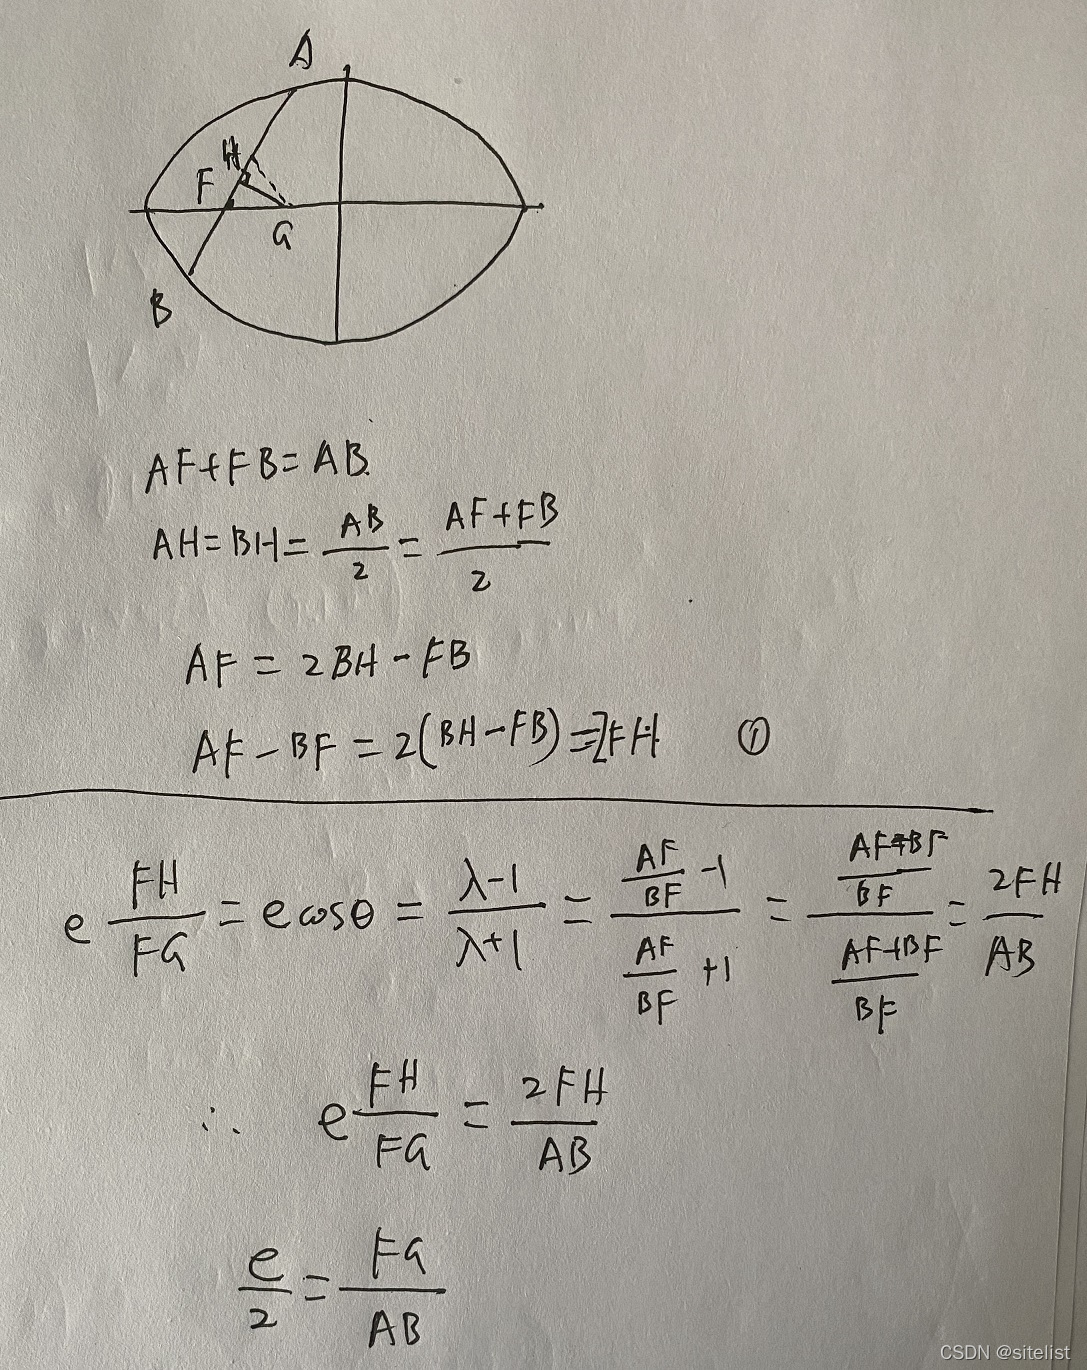 A
H
F
G
B
AF+FB=AB
AH=BH=\frac{AB}{2}=\frac{AF+FB}{2}
AF=2BH-FB
AF-BF=2(BH-FB)=2FH ①
e\frac{FH}{FG}=e cosθ=\frac{λ-1}{λ+1}=\frac{\frac{AF}{BF}-1}{\frac{AF}{BF}+1}=\frac{\frac{AF-BF}{BF}}{\frac{AF+BF}{BF}}=\frac{2FH}{AB}
∴ e\frac{FH}{FG}=\frac{2FH}{AB}
\frac{e}{2}=\frac{FG}{AB}
CSDN @sitelist